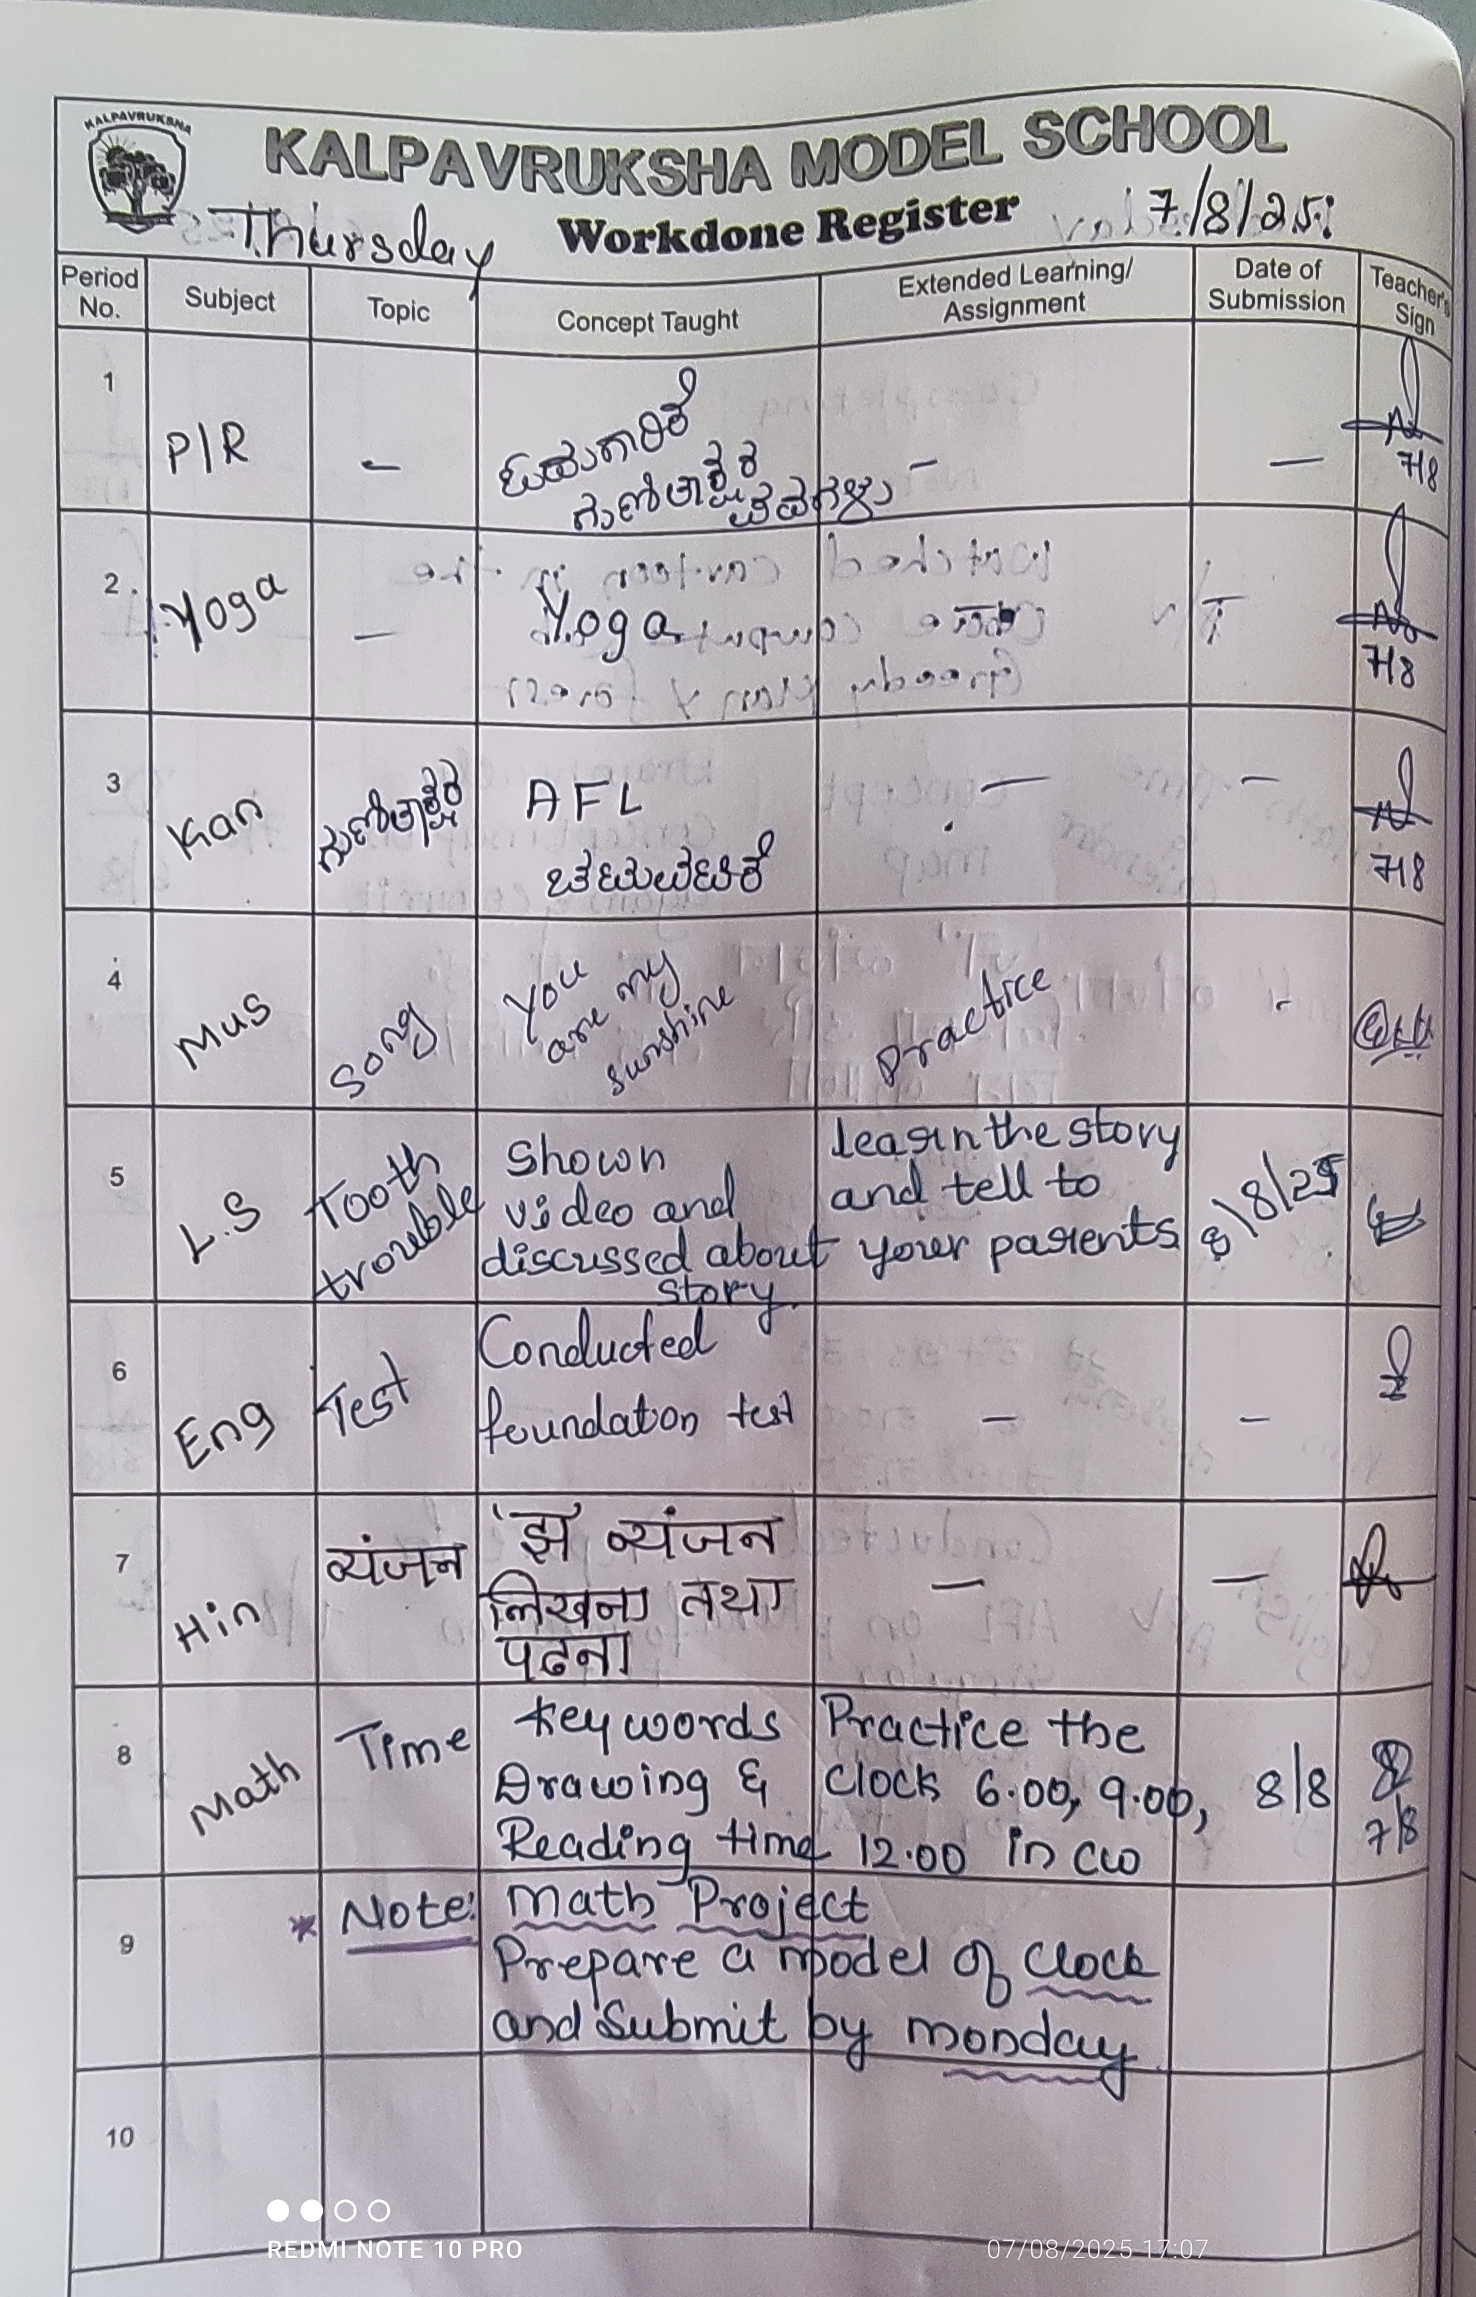 KALPAVRUKSHA
KALPAVRUKSHA MODEL SCHOOL
Thursday Workdone Register 7/8/25
Period No. Subject Topic Concept Taught Extended Learning/ Assignment Date of Submission Teacher's Sign
1 P/R - - -
7/8
2 Yoga - Yoga
7/8
3 Kan ಗುಣಿತಾಕ್ಷರ AFL - -
7/8
4 Mus Song You are my sunshine Practice -
5 L.S Tooth trouble Shown video and discussed about story learn the story and tell to your parents 8/8/25
6 Eng Test Conducted foundation test - -
7 Hin व्यंजन 'झ' व्यंजन लिखना तथा पढना - -
8 Math Time Keywords Drawing & Reading time Practice the Clock 6.00, 9.00, 12.00 in CW 8/8
7/8
9 * Note: Math Project
Prepare a model of Clock
and Submit by monday
10
REDMI NOTE 10 PRO 07/08/2025 17:07